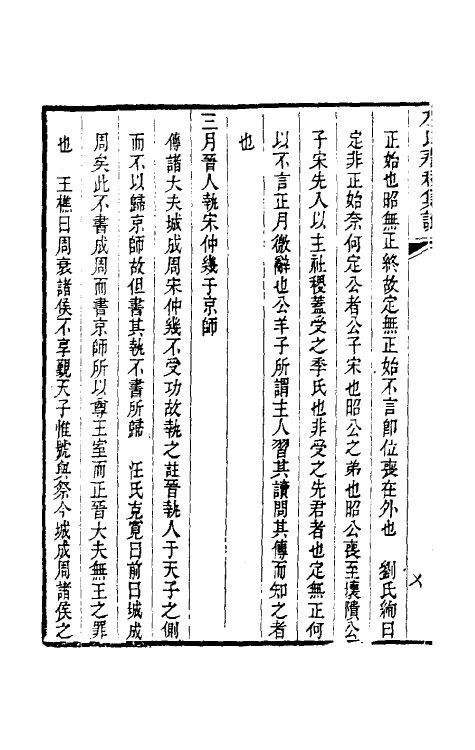 正始也昭無正終故定無正始不言卽位喪在外也　劉氏絢曰
定非正始奈何定公者公子宋也昭公之弟也昭公喪至壞隤公
子宋先入以主社稷蓋受之季氏也非受之先君者也定無正何
以不言正月微辭也公羊子所謂主人習其讀問其傳而知之者
也
三月晉人執宋仲幾于京師
傳諸大夫城成周宋仲幾不受功故執之註晉執人于天子之側
而不以歸京師故但書其執不書所歸　汪氏克寬曰前曰城成
周矣此不書成周而書京師所以尊王室而正晉大夫無王之罪
也　王樵曰周衰諸侯不享覲天子惟號與祭今城成周諸侯之